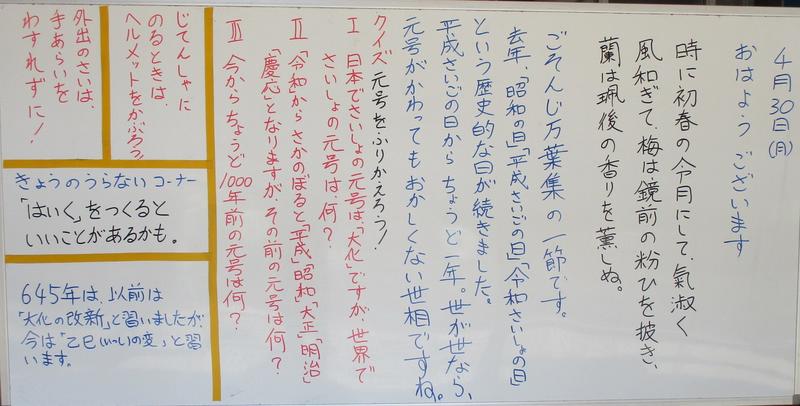 4月30日(月)
おはようございます
時に初春の令月にして、氣淑く
風和ぎて、梅は鏡前の粉ひを披き、
蘭は珮後の香りを薫しぬ。
ごぞんじ万葉集の一節です。
去年、「昭和の日」「平成さいごの日」「令和さいしょの日」
という歴史的な日が続きました。
平成さいごの日からちょうど一年。世が世なら、
元号がかわってもおかしくない世相ですね。
クイズ 元号をふりかえろう!
Ⅰ 日本でさいしょの元号は「大化」ですが、世界で
さいしょの元号は何?
Ⅱ 「令和からさかのぼると「平成」「昭和」「大正」「明治」
「慶応」となりますが、その前の元号は何?
Ⅲ 今からちょうど1000年前の元号は何?
じてんしゃに
のるときは、
ヘルメットをかぶろう!
外出のさいは、
手あらいを
わすれずに!
きょうのうらないコーナー
「はいく」をつくると
いいことがあるかも。
645年は、以前は
「大化の改新」と習いましたが、
今は「乙巳(いっし)の変」と習
います。